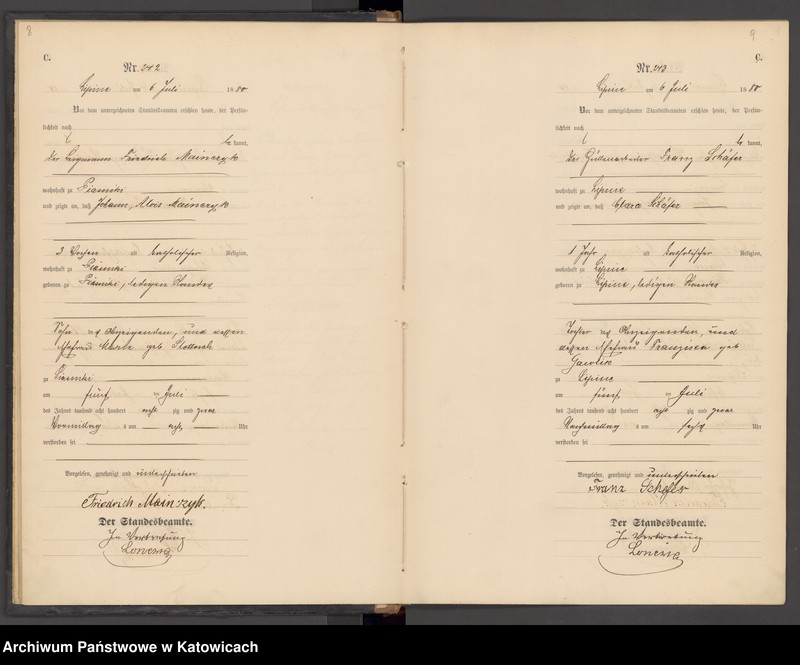 8
C.
Nr. 242
Lipine am 6 Juli 1880
Vor dem unterzeichneten Standesbeamten erschien heute, der Persön-
lichkeit nach
be kannt,
der Bergmann Friedrich Mainczyk
wohnhaft zu Piasniki
und zeigte an, daß Johann, Alois Mainczyk
3 Wochen alt katholischer Religion,
wohnhaft zu Piasniki
geboren zu Piasniki, ledigen Standes
Sohn des Anzeigenden, und dessen
Ehefrau Marie geb.
zu Piasniki
am fünf ten Juli
des Jahres tausend acht hundert acht zig und zwar
Vormittag s um acht Uhr
verstorben sei
Vorgelesen, genehmigt und unterschrieben
Friedrich Mainczyk.
Der Standesbeamte.
In Vertretung
9
C.
Nr. 243
Lipine am 6 Juli 1880
Vor dem unterzeichneten Standesbeamten erschien heute, der Persön-
lichkeit nach
be kannt,
der Hüttenarbeiter Franz Schäfer
wohnhaft zu Lipine
und zeigte an, daß Clara Schäfer
1 Jahr alt katholischer Religion,
wohnhaft zu Lipine
geboren zu Lipine, ledigen Standes
Tochter des Anzeigenden, und
dessen Ehefrau Franziska geb
zu Lipine
am fünf ten Juli
des Jahres tausend acht hundert acht zig und zwar
Nachmittag s um sechs Uhr
verstorben sei
Vorgelesen, genehmigt und unterschrieben
Franz Schefer
Der Standesbeamte.
In Vertretung
Archiwum Państwowe w Katowicach